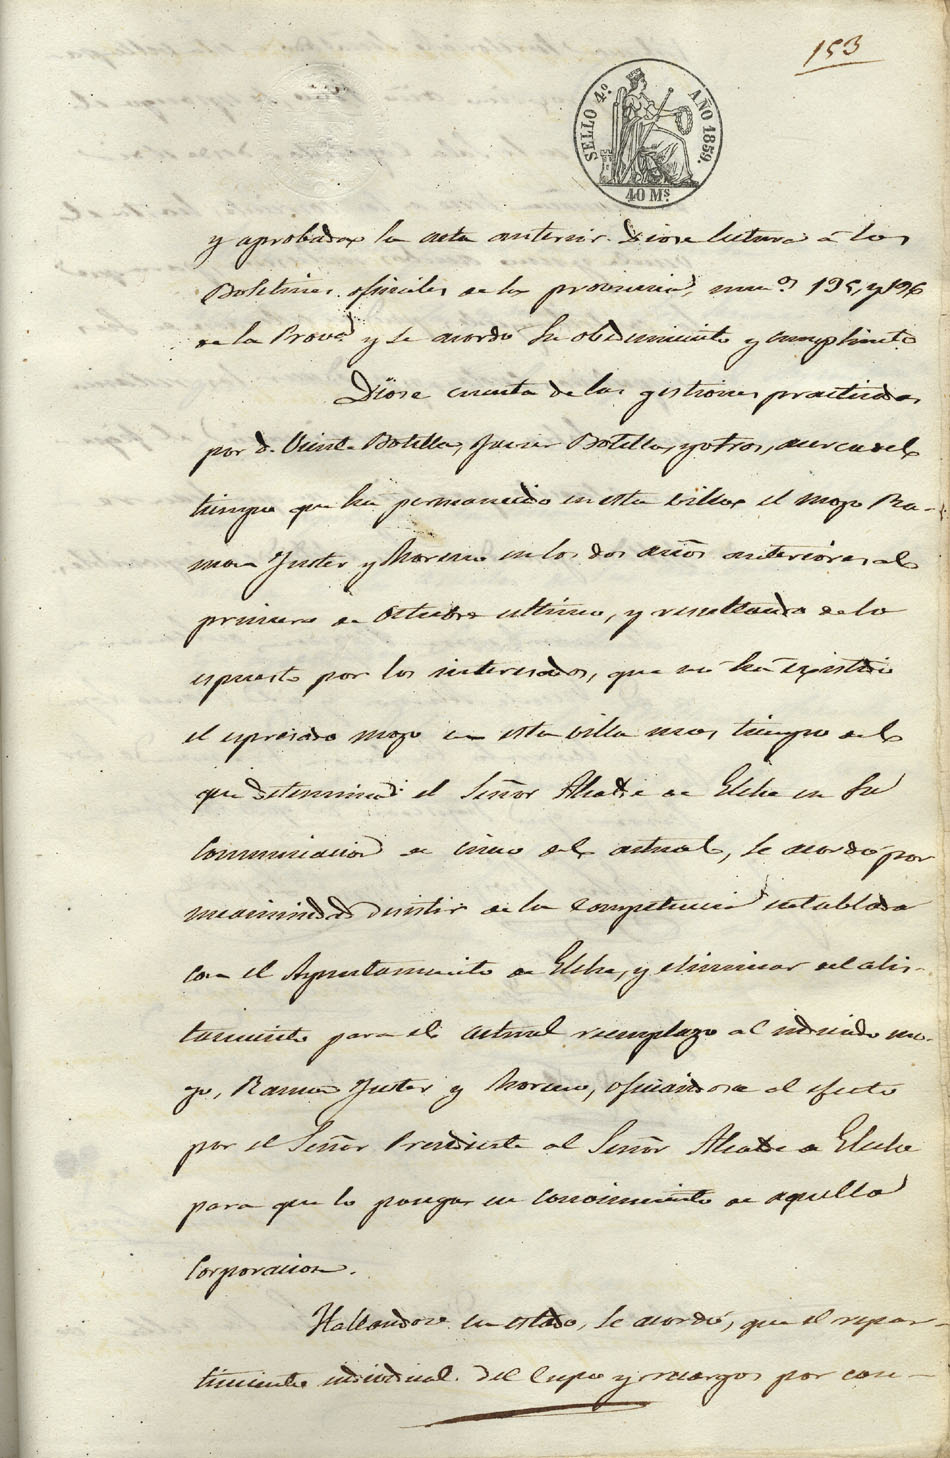 153
SELLO 4.º AÑO 1859.
40 Ms.
y aprobada la acta anterior. Diose lectura á los
Boletines oficiales de la provincia, num.os 195, y 196
de la Prov.a y se acordó su obedecimiento y cumplimto.
Diose cuenta de las gestiones practicadas
por D. Vicente Botella, Javier Botella, y otros, acerca del
tiempo que ha permanecido en esta villa el mozo Ra-
mon Juster y Moreno en los dos años anteriores al
primero de Octubre ultimo, y resultando de lo
espuesto por los interesados, que no ha existido
el espresado mozo en esta villa mas tiempo del
que determina el Señor Alcalde de Elche en su
comunicacion de cinco del actual, se acordó por
unanimidad desistir de la competencia entablada
con el Ayuntamiento de Elche, y eliminar del alis-
tamiento para el actual reemplazo al indicado mo-
zo, Ramon Juster y Moreno, oficiandose al efecto
por el Señor Presidente al Señor Alcalde de Elche
para que lo ponga en conocimiento de aquella
Corporacion.
Hallandose en estado, se acordó, que el repar-
timiento individual del cupo y recargos por con-